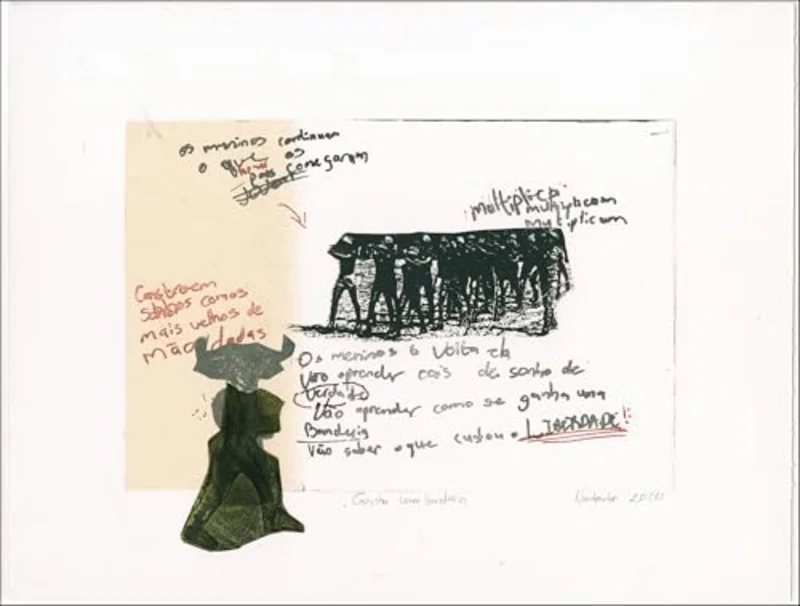 os meninos continuam
o que os
pais começaram
multiplica
multiplicam
multiplicam
Constroem
sonhos com os
mais velhos de
mãos dadas
Os meninos à volta da
Vão aprender cois de sonho de
Verdade
Vão aprender como se ganha uma
Bandeira
Vão saber o que custou a LIBERDADE!